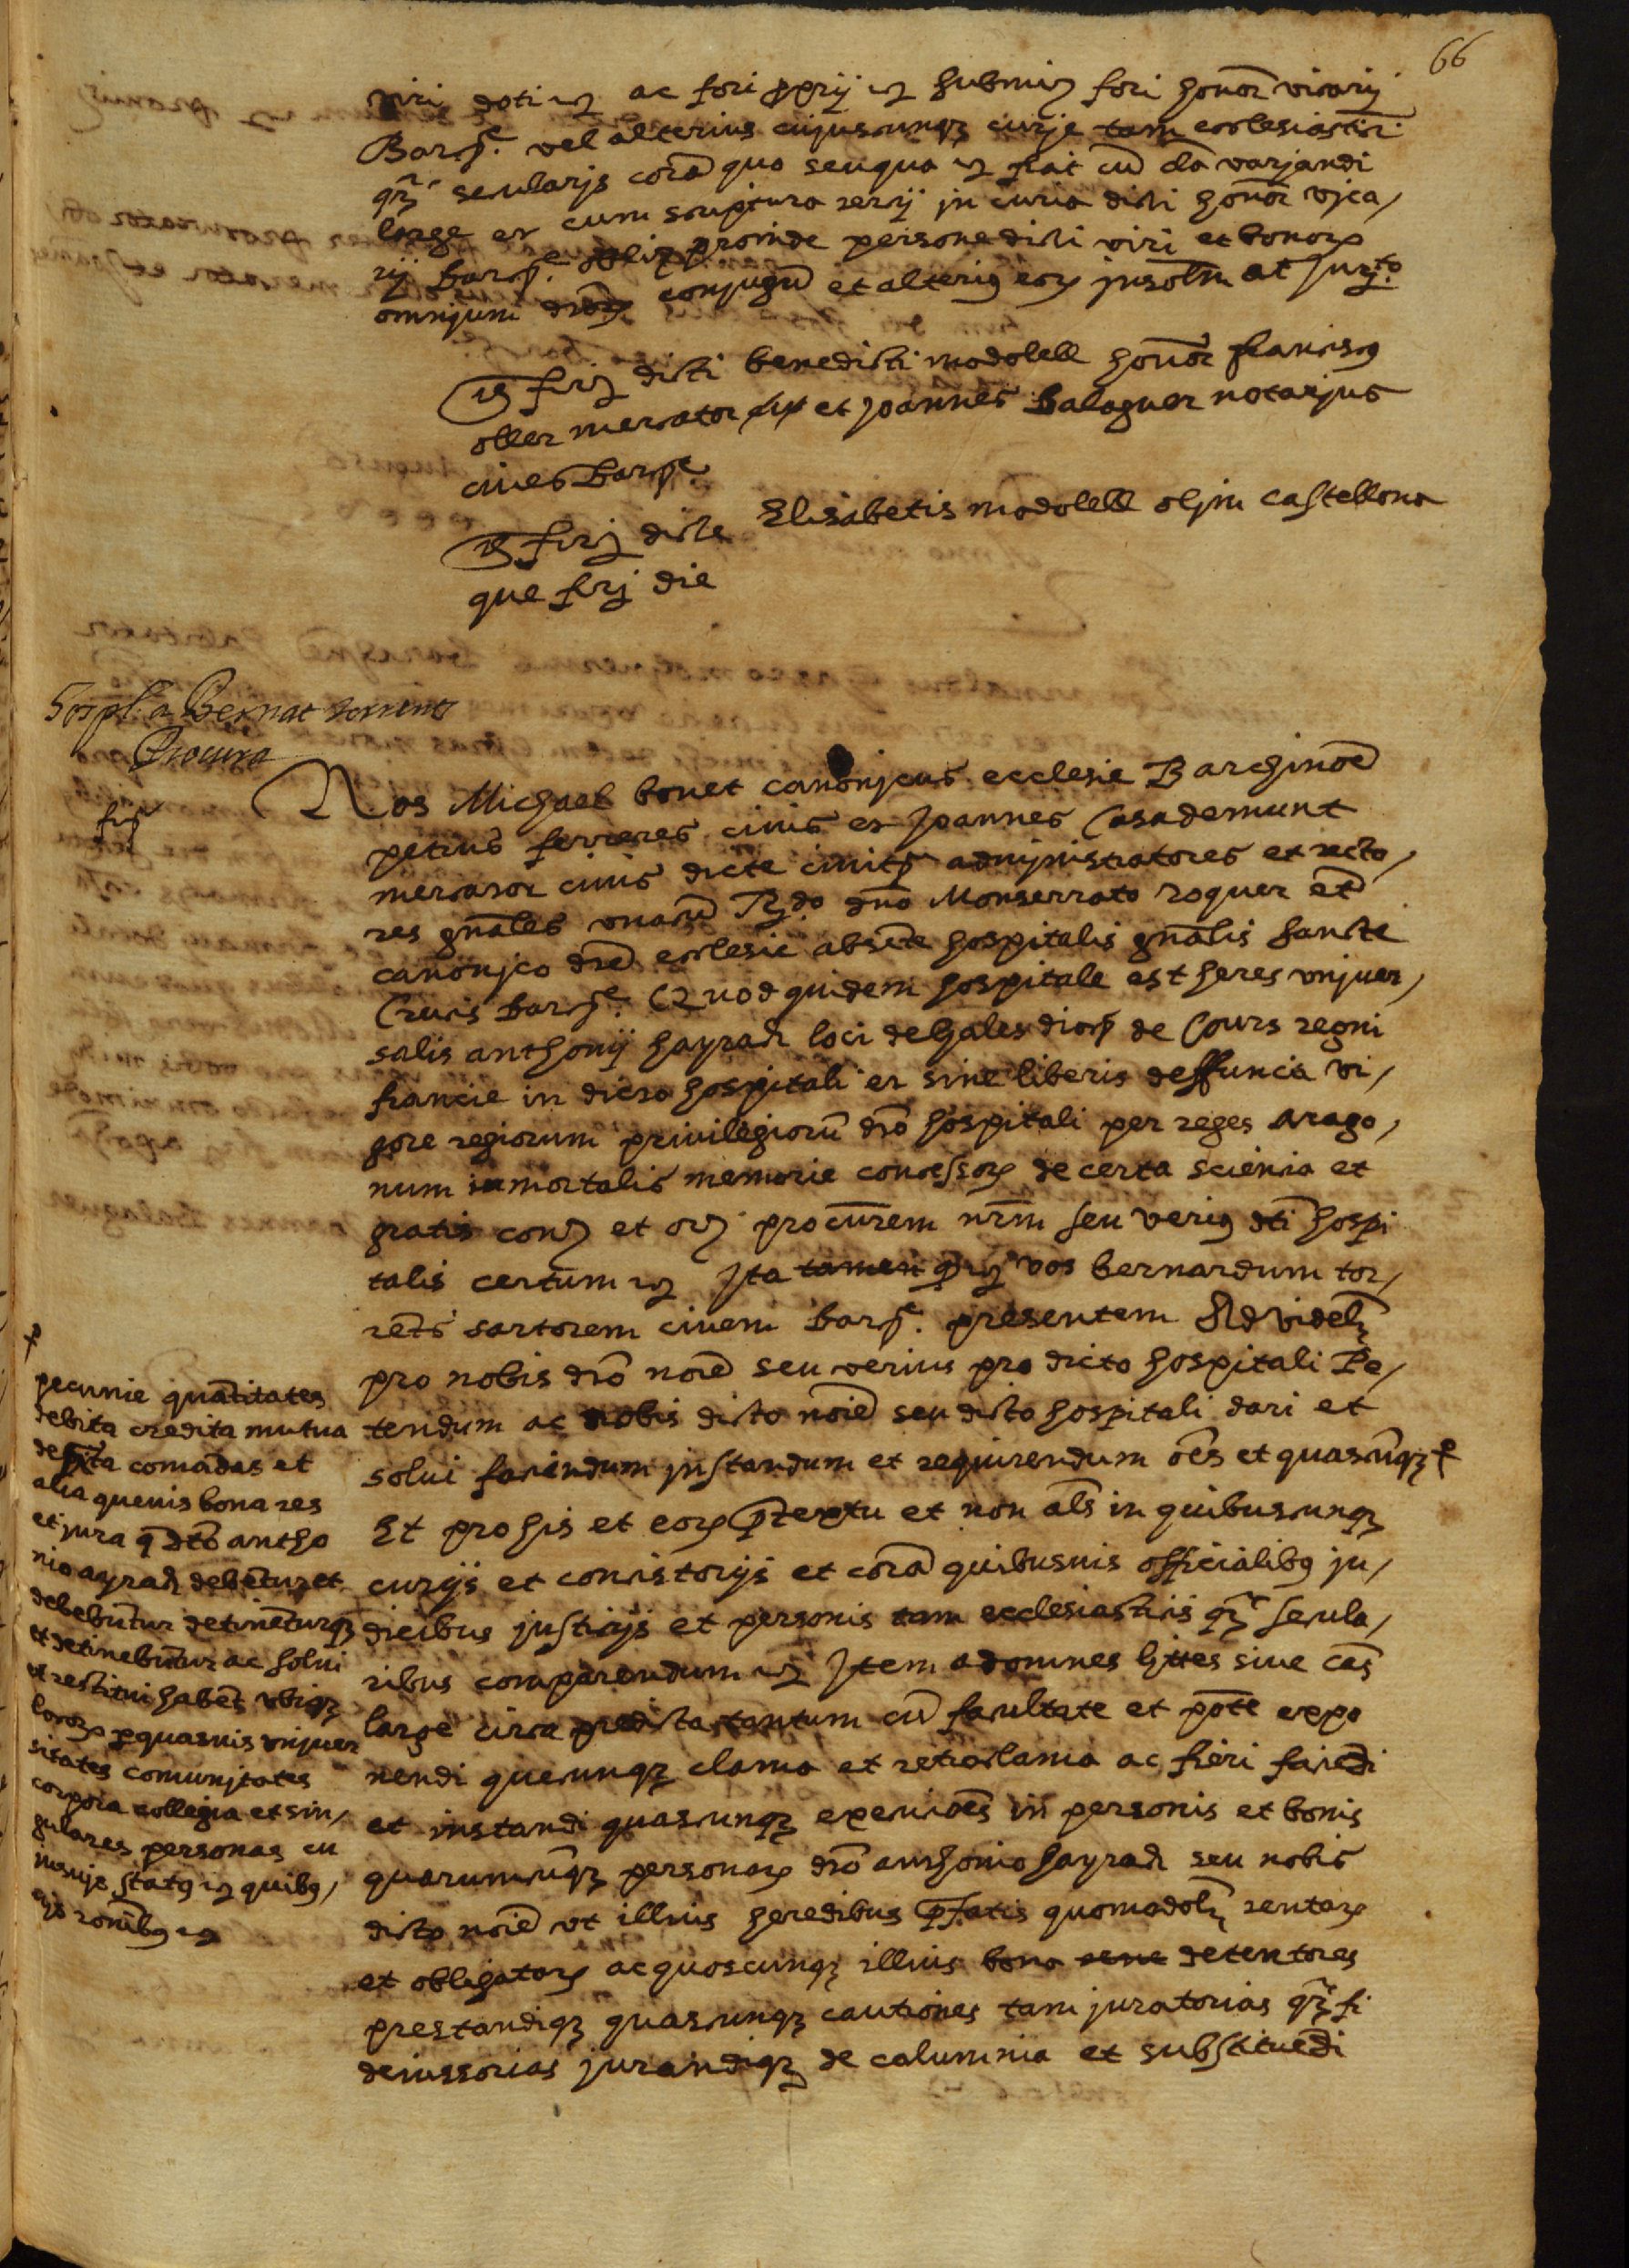 66
viri doti etz ac fori ꝓprij etz submis fori honor vicarij
Barcñe. vel alterius cujuscunqȝ curje tam ecclesiastici
qȝ secularjs corã quo seu qua etz fiat cũ cla varjandi
large et cum scriptura tercij jn curia dicti honor vjca/
rij barcñe. proinde persone dicti viri et bonorꝝ
omnjum dcorꝝ conjugũ et alteriꝰ eorꝝ jnsolm at jurto.
Ts firȝ dicti benedicti modolell honor franciscꝰ
oller mercator et joannes Balaguer notarjus
ciues Barcñe
Ts firȝ dicte Elisabetis modolell oljm castellona
que firj die
Hospl. a Bernat torrents
Procura
fir
Nos Michael bonet canonjcus ecclesie Barchinoẽ
petrus ferreres ciuis et joannes Casademunt
mercator ciuis dicte ciuitȩ admjnistratores et recto/
res gñales vnacũ Rdo dno Monserrato roquer etẽ
canonjco dcẽ ecclesie absẽte hospitalis gñalis sancte
Crucis barcñe. Quod quidem hospitale est heres vnjuer/
salis anthonij hayrach loci de hales dioc de Cours regni
francie in dicto hospitali et sine liberis deffuncti vi/
gore regiorum privilegiorũ dco hospitali per reges arago/
num inmortalis memorie concessorꝝ de certa sciencia et
gratis cons et ors procurem nrm seu veriꝰ dti hospi
talis certum etz Jta tamen qȝ vos bernardum tor/
rẽts sartorem ciuem barcñe. presentem Ad videlȝ
pro nobis dco noiẽ seu verius pro dicto hospitali Pe/
tendum ac nobis dicto noiẽ seu dicto hospitali dari et
solui faciendum jnstandum et requirendum oẽs et quascũqȝ +
Et pro his et eorꝝ p̃textu et non als in quibuscunqȝ
curijs et concistorijs et corã quibusuis officialibꝰ ju/
dicibus justicijs et personis tam ecclesiasticis qȝ secula/
ribus comparendum etz Jtem ad omnes littes siue cas
large circa predicta tantum cũ facultate et põte expo
nendi quecunqȝ clama et retroclama ac fieri faciẽdi
et instandi quascunqȝ execuciões in personis et bonis
quarumcũqȝ personarꝝ dco anthonio hayrach seu nobis
dicto noiẽ vt illius heredibus p̃fatis quomodolȝ tentarꝝ
et obligatarꝝ ac quoscunqȝ illius bona detentores
prestandiqȝ quascunqȝ cautiones tam juratorias qȝ fi
deiussorias jurandiqȝ de calumnia et substituẽdi
+
pecunie quãtitates
debita credita mutua
deposita comãdas et
alia queuis bona res
et jura q̃ dto antho
nio ayrach debẽtur et
debebũtur detinẽturqȝ
et detinebũtur ac solui
et restitui habẽt vbiqȝ
locorꝝ ꝑ quasuis vnjuer
sitates comunjtates
corpora collegia et sin/
gulares personas cu
jusuis statꝰ etz quibꝰ/
uis ronibꝰ etz